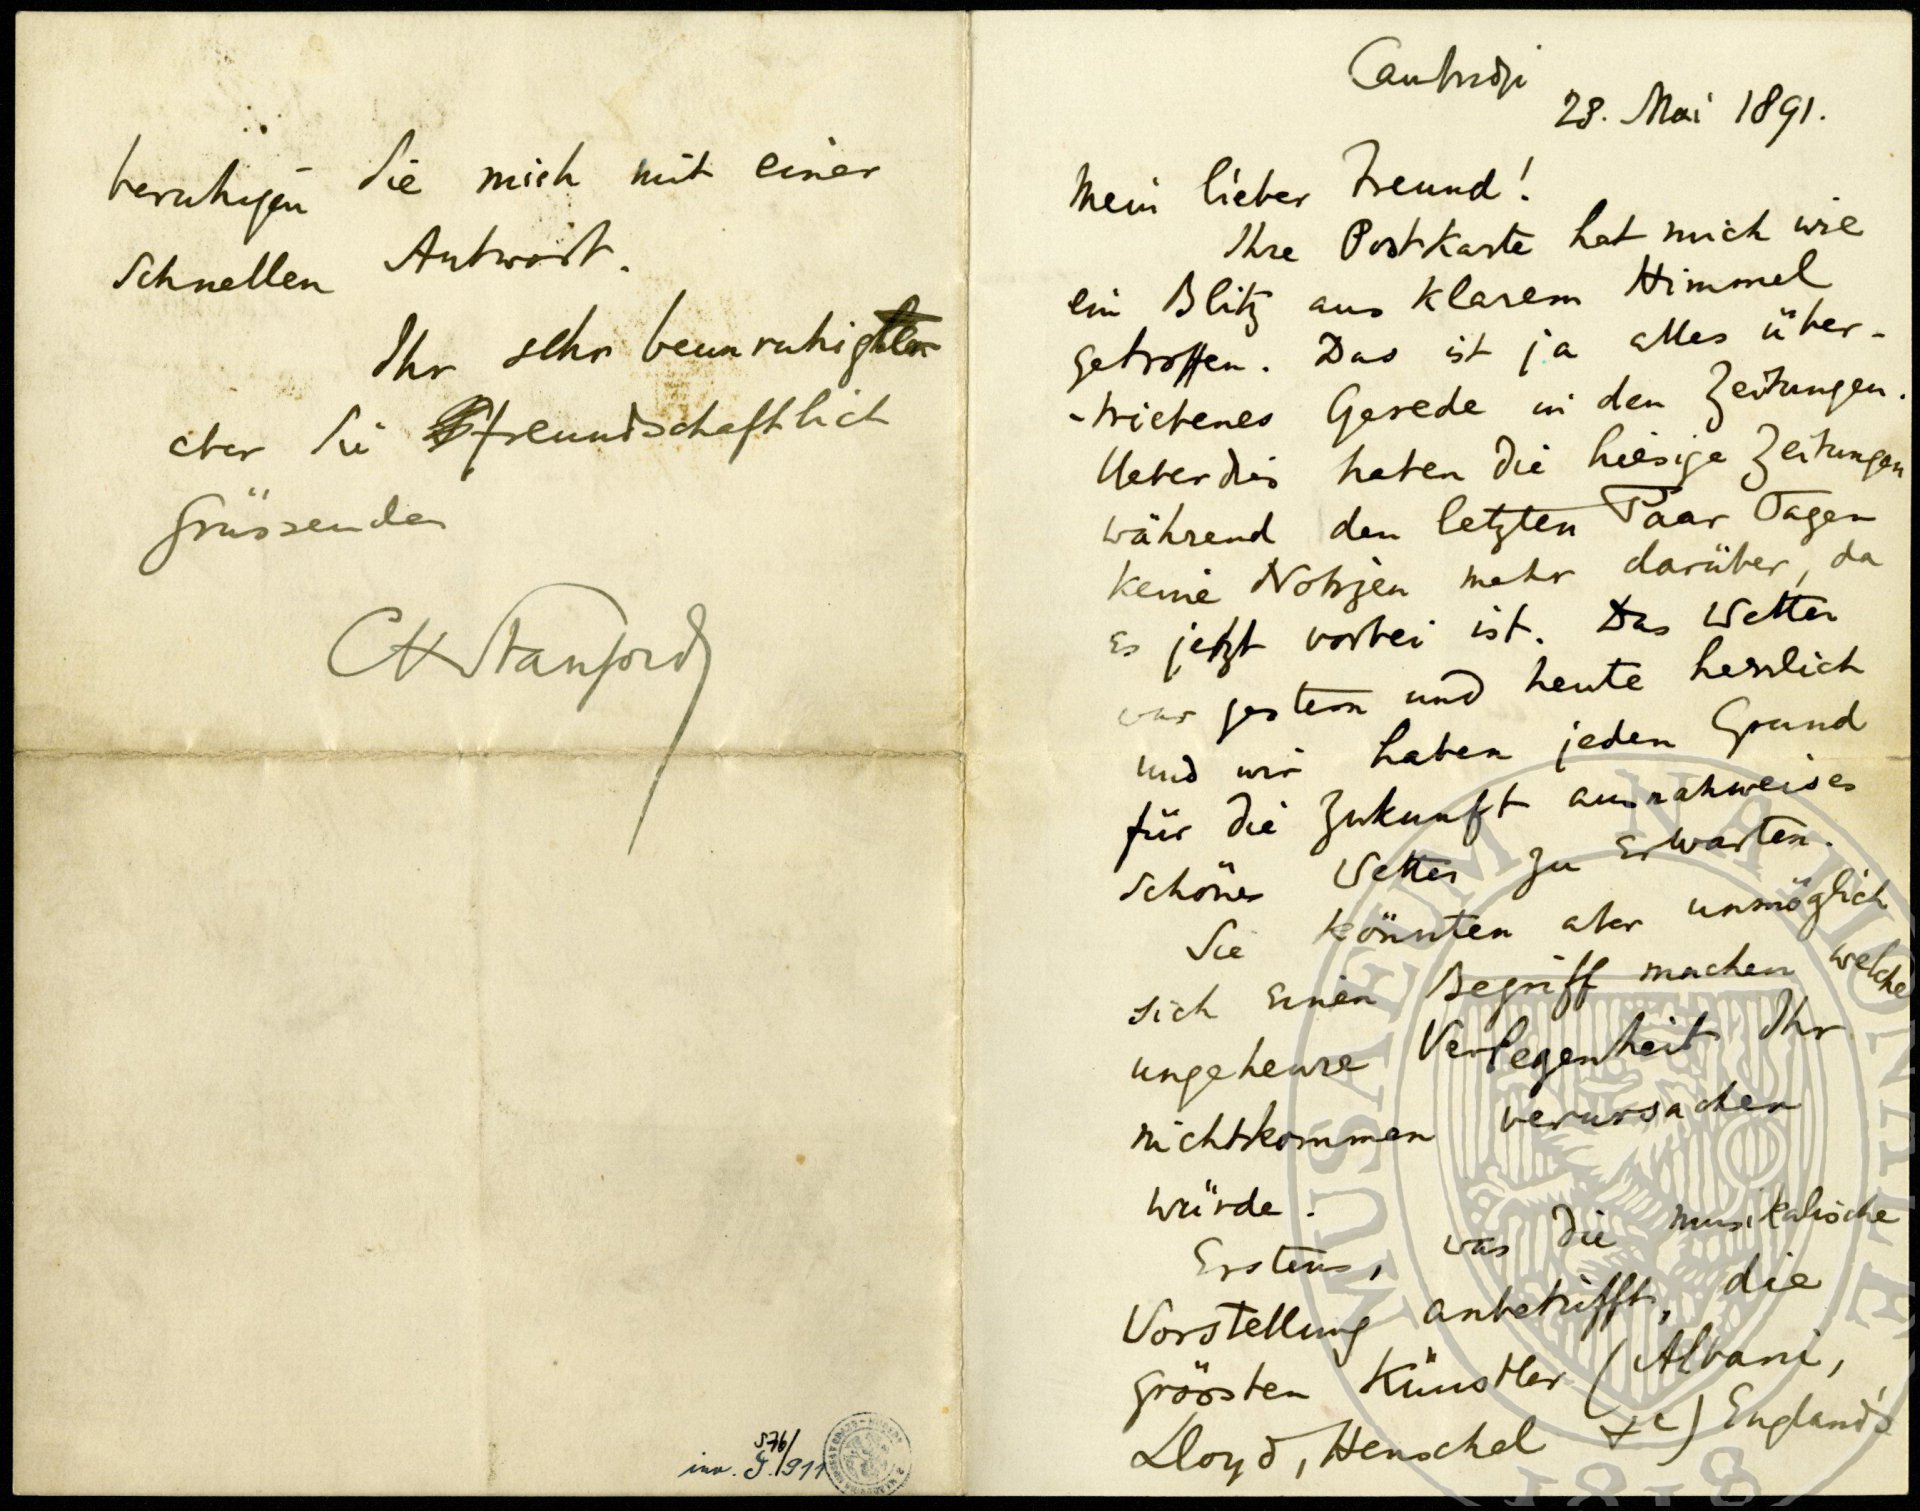 beruhigen Sie mich mit einer
Schnellen Antwort.
Ihr sehr beunruhigter
aber Sie freundschaftlich
grüssender
CVStanford
inv. G. 576/911
Cambridge
28. Mai 1891.
Mein lieber Freund!
Ihre Postkarte hat mich wie
ein Blitz aus klarem Himmel
getroffen. Das ist ja alles über-
-triebenes Gerede in den Zeitungen.
Ueberdies haben die hiesige Zeitungen
während den letzten Paar Tagen
keine Notizen mehr darüber, da
es jetzt vorbei ist. Das Wetter
war gestern und heute herrlich
und wir haben jeden Grund
für die Zukunft ausnahweises
Schönes Wetter zu erwarten.
Sie könnten aber unmöglich
sich einen Begriff machen welche
ungeheure Verlegenheit Ihr
nichtkommen verursachen
würde.
Erstens, was die musikalische
Vorstellung anbetrifft, die
grössten Künstler (Albani,
Lloyd, Henschel &c) England's
MUSAEUM NATIONALE
1818